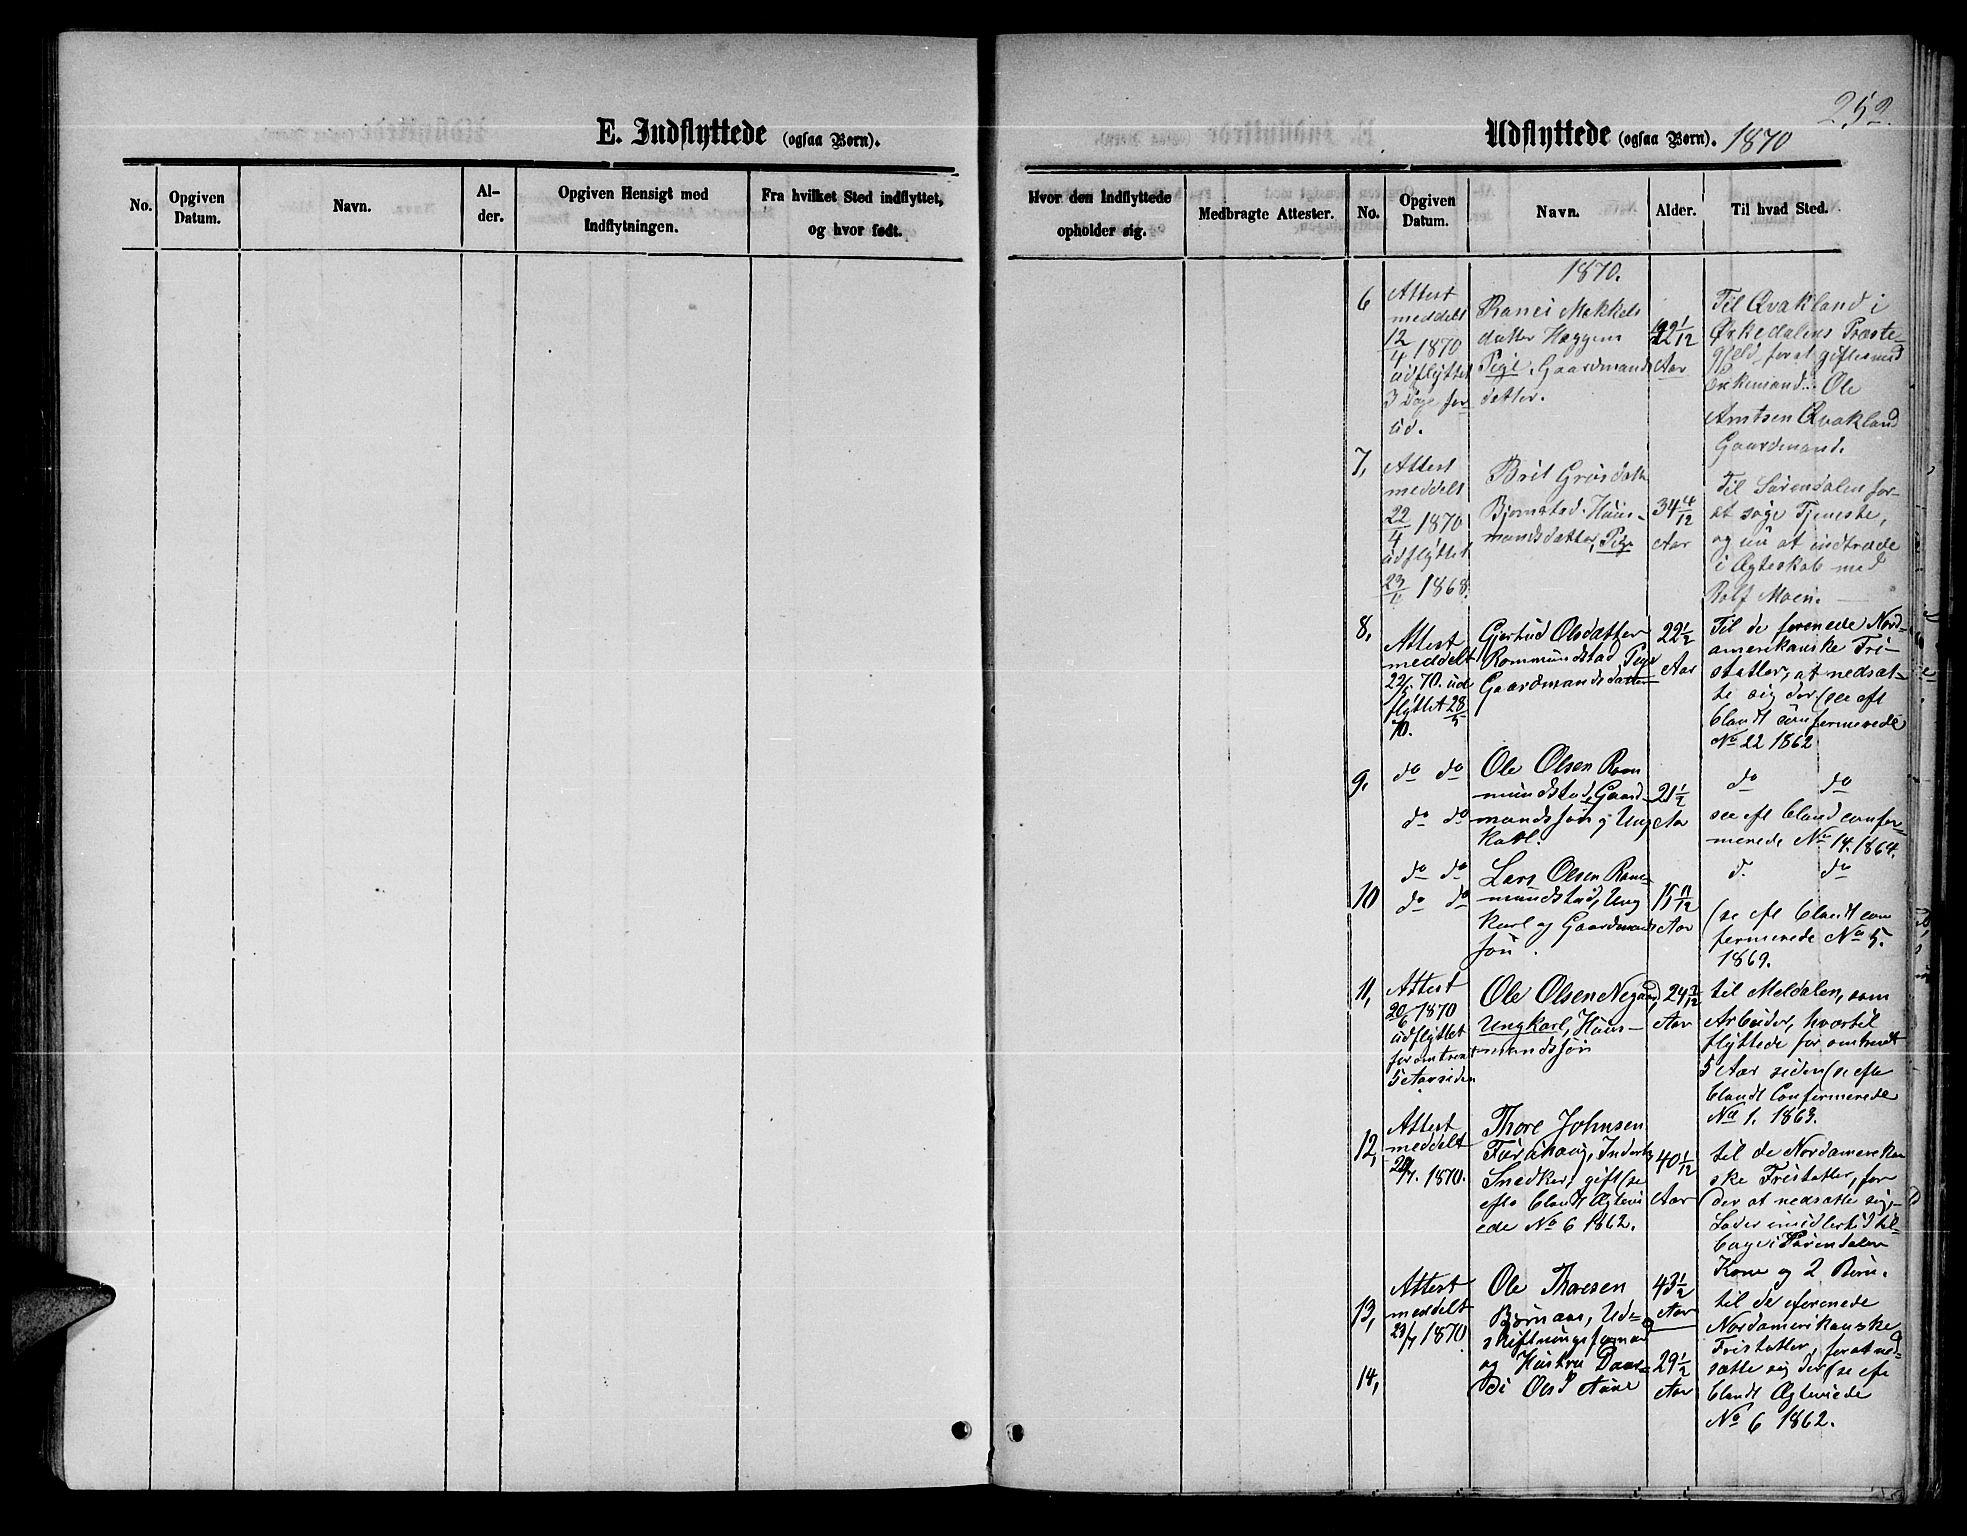 252.
E. Indflyttede (ogsaa Børn).
Udflyttede (ogsaa Børn). 1870
No.
Opgiven Datum.
Navn.
Al-
der.
Opgiven Hensigt med
Indflytningen.
Fra hvilket Sted indflyttet,
og hvor født.
Hvor den Indflyttede
opholder sig.
Medbragte Attester.
No.
Opgiven
Datum.
Navn.
Alder.
Til hvad Sted.
1870.
6
Attest
meddelt
12/4 1870
udflyttet
3 Dage for-
ud.
Ranei Mekkels
datter Haggen
Pige, Gaardmands
datter.
1/12
Aar
Til Qvakland i
Ørkedalens Præste-
gjeld, for at giftes med
Enkemand Ole
Arntsen Qvakland
Gaardmand.
7,
Attest
meddelt
22/4 1870
udflyttet
1868.
Brit
Bjørnstad, Huus-
mandsdatter, Pige
34 4/12
Aar
Til Surendalen for
at søge Tjeneste,
og nu at indtræde
i Ægteskab med
Rolf Moen.
8,
Attest
meddelt
22/5 70. ud
flyttet 28/5
70.
Gjertrud Olsdatter
Rommundstad, Pige
Gaardmandsdatter
22 1/2
Aar
Til de forenede Nord-
amerikanske Fri-
statter, at nedsæt-
te sig der (see efl
blandt confermerede
No 22 1862
9,
do do
do do
Ole Olsen Rom
mundstad, Gaard-
mandssøn, Ung
karl.
21 1/2
Aar
do do
see efl bland confer-
merede No 14. 1864.
10
do do
do do
Lars Olsen Rom-
mundstad, Ung
karl og Gaardmands
søn.
15 11/12
Aar
d. do
(se efl blandt con
fermerede No 5.
1869.
11,
Attest
20/6 1870
udflyttet
for omtrent
5 Aar siden
Ole Olsen Negaard,
Ungkarl, Huus-
mandssøn
24
Aar
til Meldalen, som
Arbeider, hvortil
flyttede for omtrent
5 Aar siden (se efl
blandt Confermerede
No 1. 1863.
12,
Attest
meddelt
1870.
Thore Johnsen
Furuhaug, Inderst
Snedker, gift (se
efl blandt Ægtevi
ede No 6 1862.
40 1/12
Aar
til de Nordamerikan
ske Fristatter, for
der at nedsætte sig,
Lader imidlertid til-
bage i Surendalen
Kone og 2 Børn.
13,
Attest
meddelt
23/7 1870
Ole Thoresen
Børuaas, Ud-
skiftningsforman
43 1/2
Aar
til de forenede
Nordamerikanske
Fristatter, for at ned-
sætte sig der (se efl
blandt Ægteviede
No 6 1862.
14,
og Hustru
Olsd Aune
29 1/2
Aar